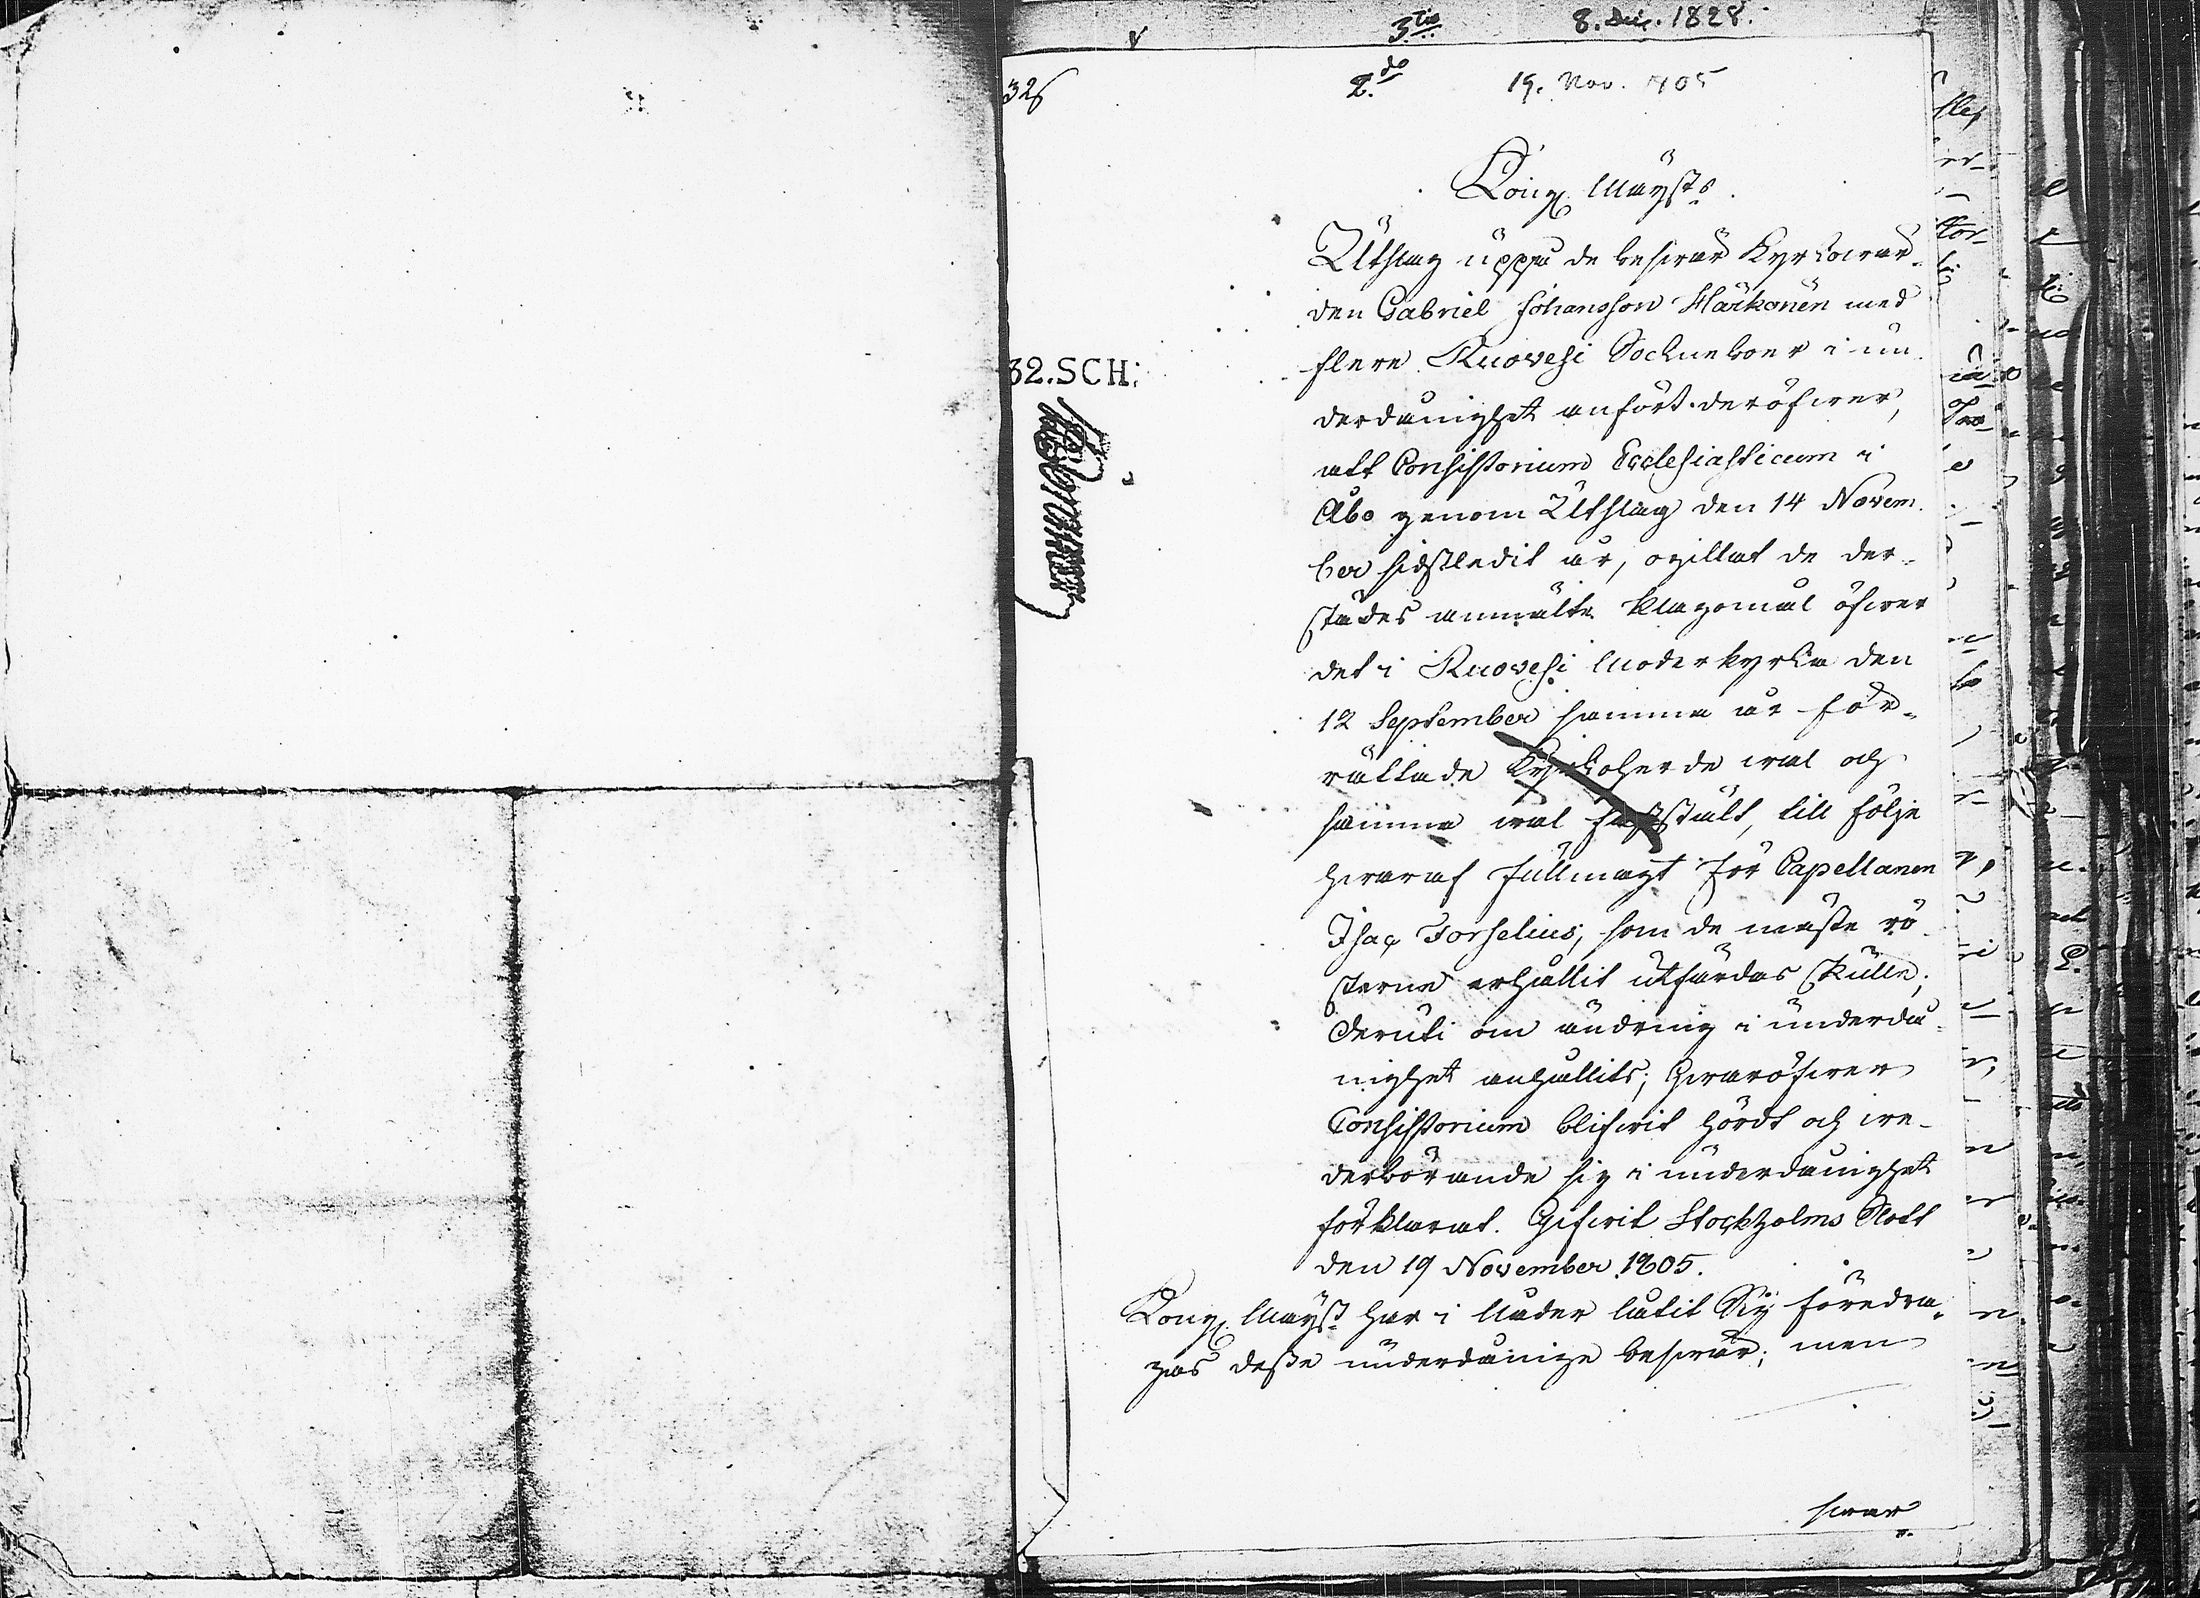 3tio 8. Dec. 1828.
326
2do 19. Nov. 1805
Kongl. Maÿsts
Utslag uppå de beswär Kyrkowär-
den Gabriel Johansson Härkönen med
flere Ruovesi Sockneboer i un-
derdånighet anfört deröfwer,
att Consistorium Ecclesiasticum i
Åbo genom Utslag den 14 Novem-
ber sidstledit år, ogillat de der-
städes anmälte klagomål öfwer
det i Ruovesi Moderkyrka den
12 September samma år för-
rättade Kyrkoherde wal och
samma wal fastställt, till följe
hwaraf fullmagt för Capellanen
Isac Forselius, som de mäste rö-
sterne erhållit utfärdas skulle;
Deruti om ändring i underdå-
nighet anhållits; hwaröfwer
Consistorium blifwit hördt och we-
derbörande sig i underdånighet
förklarat. Gifwit Stockholms Slott
den 19 November 1805.
Kongl. Maÿst har i Nåder låtit Sig föredra-
gas desse underdånige beswär; men
swar
32.SCH: